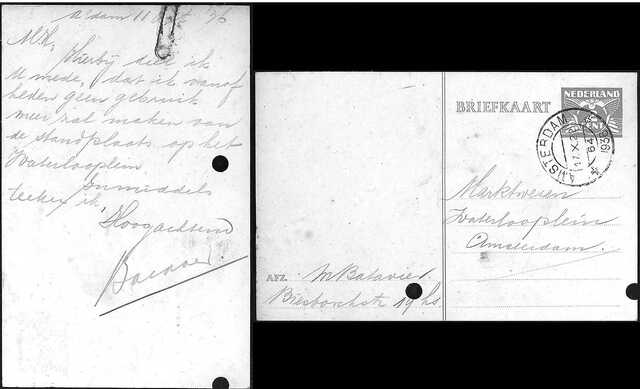 A'dam 11
M.H.
Hierbij deel ik
U mede, dat ik vanaf
heden geen gebruik
meer zal maken van
de standplaats op het
Waterlooplein
Inmiddels
teeken ik,
Hoogachtend
BRIEFKAART
NEDERLAND
AMSTERDAM
Marktwezen
Waterlooplein
Amsterdam.
AFZ. M Batavier
19 hs